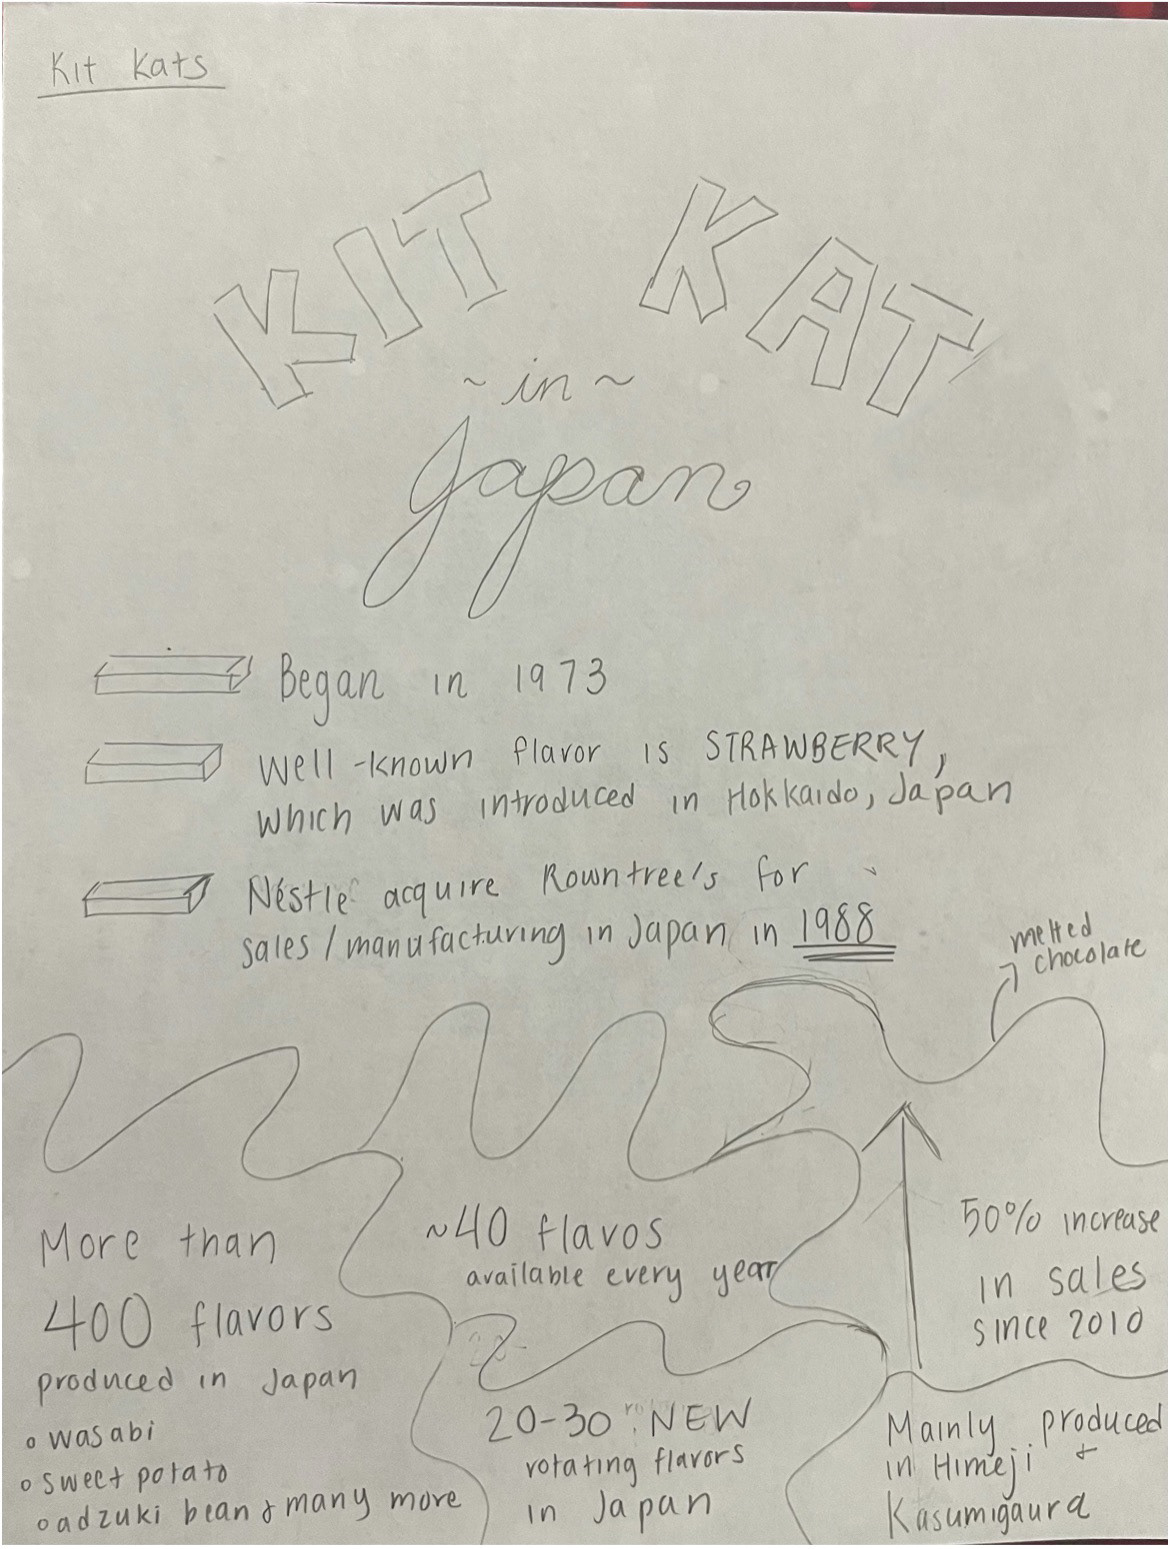 Kit Kats
KIT KAT
~ in ~
Japan
Began in 1973
Well-known flavor is STRAWBERRY,
which was introduced in Hokkaido, Japan
Néstle acquire Rowntree's for
sales/manufacturing in Japan in 1988
melted
chocolate
More than
400 flavors
produced in Japan
o wasabi
o sweet potato
o adzuki bean & many more
~40 flavos
available every year
20-30 NEW
rotating flavors
in Japan
50% increase
in sales
since 2010
Mainly produced
in Himeji &
Kasumigaura